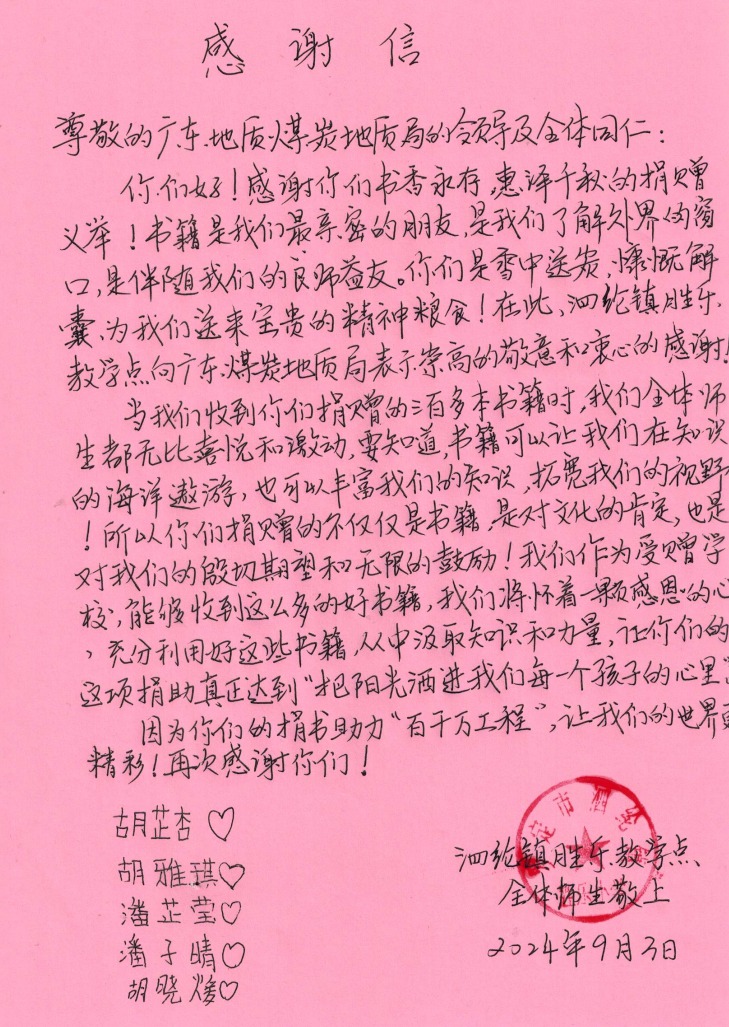 感谢信
尊敬的广东地质煤炭地质局的领导及全体同仁:
你们好!感谢你们书香永存,惠泽千秋的捐赠
义举!书籍是我们最亲密的朋友,是我们了解外界的窗
口,是伴随我们的良师益友。你们是雪中送炭,慷慨解
囊,为我们送来宝贵的精神粮食!在此,泗纶镇胜乐
教学点向广东煤炭地质局表示崇高的敬意和衷心的感谢!
当我们收到你们捐赠的三百多本书籍时,我们全体师
生都无比喜悦和激动,要知道,书籍可以让我们在知识
的海洋遨游,也可以丰富我们的知识,拓宽我们的视野
!所以你们捐赠的不仅仅是书籍,是对文化的肯定,也是
对我们的殷切期望和无限的鼓励!我们作为受赠学
校,能够收到这么多的好书籍,我们将怀着一颗感恩的心
,充分利用好这些书籍,从中汲取知识和力量,让你们的
这项捐助真正达到“把阳光洒进我们每一个孩子的心里”
因为你们的捐书助力“百千万工程”,让我们的世界更
精彩!再次感谢你们!
胡芷杏♡
胡雅琪♡
潘芷莹♡
潘子晴♡
胡晓♡
定市泗纶
泗纶镇胜乐教学点
全体师生敬上
2024年9月3日